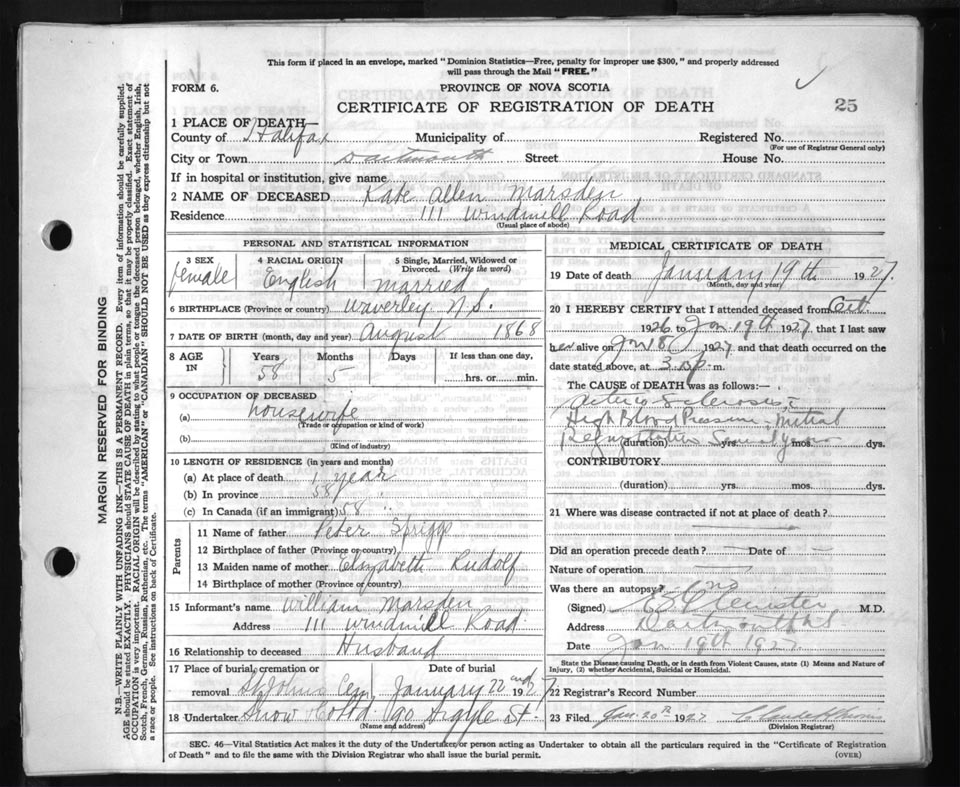 This form if placed in an envelope, marked "Dominion Statistics—Free, penalty for improper use $300," and properly addressed
will pass through the Mail "FREE."
FORM 6.
PROVINCE OF NOVA SCOTIA
CERTIFICATE OF REGISTRATION OF DEATH
25
1 PLACE OF DEATH—
County of Halifax Municipality of Registered No.
(For use of Registrar General only)
City or Town Dartmouth Street House No.
If in hospital or institution, give name
2 NAME OF DECEASED Kate Allen Marsden
Residence 111 Windmill Road
(Usual place of abode)
PERSONAL AND STATISTICAL INFORMATION
3 SEX 4 RACIAL ORIGIN 5 Single, Married, Widowed or
Divorced. (Write the word)
female English married
6 BIRTHPLACE (Province or country) Waverley N.S.
7 DATE OF BIRTH (month, day and year) August 1868
8 AGE IN Years Months Days If less than one day,
58 5 hrs. or min.
9 OCCUPATION OF DECEASED
(a) housewife
(Trade or occupation or kind of work)
(b)
(Kind of industry)
10 LENGTH OF RESIDENCE (in years and months)
(a) At place of death 1 year
(b) In province 58 "
(c) In Canada (if an immigrant) 58 "
Parents
11 Name of father Peter Spriggs
12 Birthplace of father (Province or country)
13 Maiden name of mother Elizabeth Rudolf
14 Birthplace of mother (Province or country)
15 Informant's name William Marsden
Address 111 Windmill Road
16 Relationship to deceased Husband
17 Place of burial, cremation or Date of burial
removal St Johns Cem. January 22nd 1927
18 Undertaker Snow & Co Ltd 90 Argyle St.
(Name and address)
MEDICAL CERTIFICATE OF DEATH
19 Date of death January 19th 1927.
(Month, day and year)
20 I HEREBY CERTIFY that I attended deceased from Oct
1926 to Jan 19th 1927, that I last saw
her alive on Jan 18 1927 and that death occurred on the
date stated above, at 3 p. m.
The CAUSE of DEATH was as follows:—
Arterio Sclerosis
High Blood Pressure Mitral
Regurgitation
(duration) yrs. mos. dys.
CONTRIBUTORY
(duration) yrs. mos. dys.
21 Where was disease contracted if not at place of death?
Did an operation precede death? — Date of —
Nature of operation —
Was there an autopsy? no
(Signed) M.D.
Address Dartmouth NS
Date Jan 19th 1927
State the Disease causing Death, or in death from Violent Causes, state (1) Means and Nature of
Injury, (2) whether Accidental, Suicidal or Homicidal.
22 Registrar's Record Number
23 Filed Jan. 20th 1927
(Division Registrar)
SEC. 46—Vital Statistics Act makes it the duty of the Undertaker or person acting as Undertaker to obtain all the particulars required in the "Certificate of Registration
of Death" and to file the same with the Division Registrar who shall issue the burial permit.
(OVER)
MARGIN RESERVED FOR BINDING
N.B.—WRITE PLAINLY WITH UNFADING INK—THIS IS A PERMANENT RECORD. Every item of information should be carefully supplied.
AGE should be stated EXACTLY. PHYSICIANS should STATE CAUSE OF DEATH in plain terms, so that it may be properly classified. Exact statement of
OCCUPATION is very important. RACIAL ORIGIN will be described by stating to what people or tongue the deceased person belonged, whether English, Irish,
Scotch, French, German, Russian, Ruthenian, etc. The terms "AMERICAN" or "CANADIAN" SHOULD NOT BE USED as they express citizenship but not
a race or people. See instructions on back of Certificate.